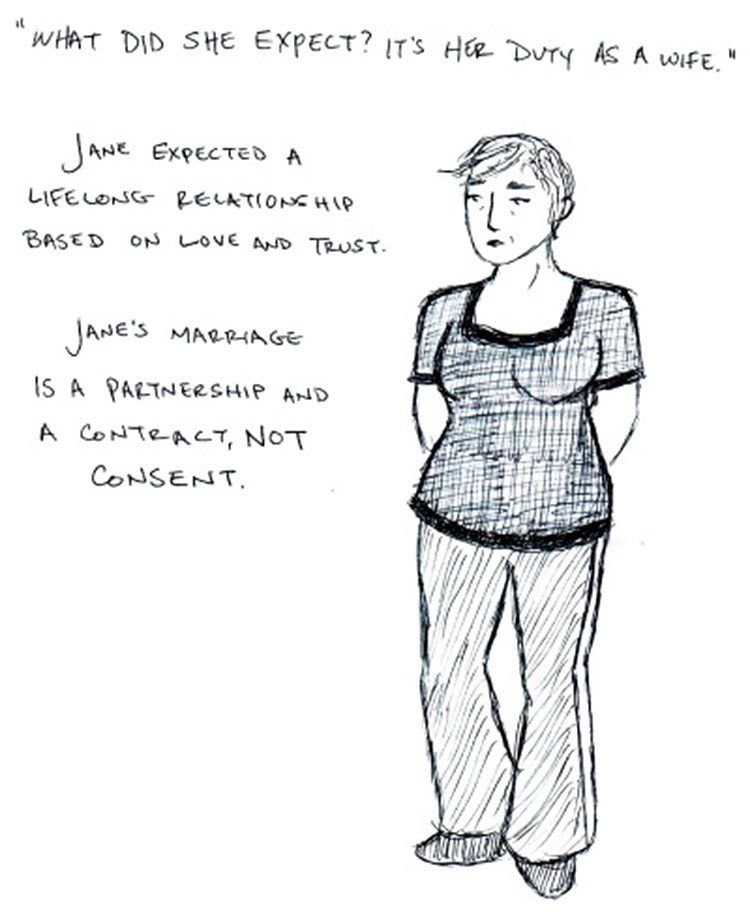 "WHAT DID SHE EXPECT? IT'S HER DUTY AS A WIFE."
JANE EXPECTED A
LIFELONG RELATIONSHIP
BASED ON LOVE AND TRUST.
JANE'S MARRIAGE
IS A PARTNERSHIP AND
A CONTRACT, NOT
CONSENT.